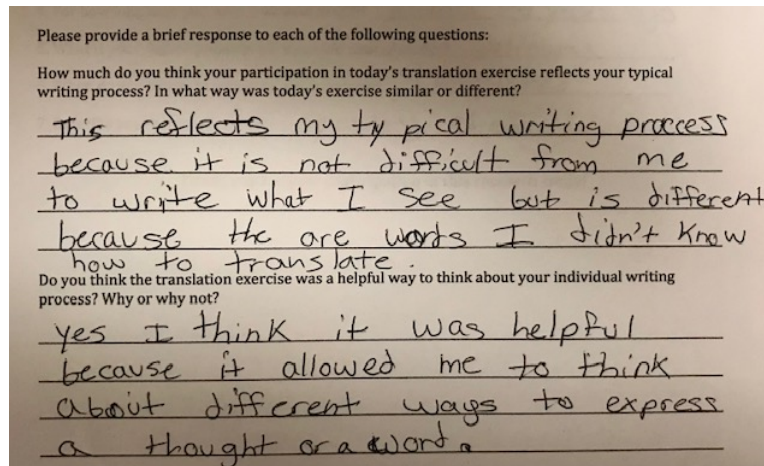 Please provide a brief response to each of the following questions:
How much do you think your participation in today's translation exercise reflects your typical
writing process? In what way was today's exercise similar or different?
This reflects my typical writing proccess
because it is not difficult from me
to write what I see but is different
because the are words I didn't know
how to translate.
Do you think the translation exercise was a helpful way to think about your individual writing
process? Why or why not?
yes I think it was helpful
because it allowed me to think
about different ways to express
a thought or a word.